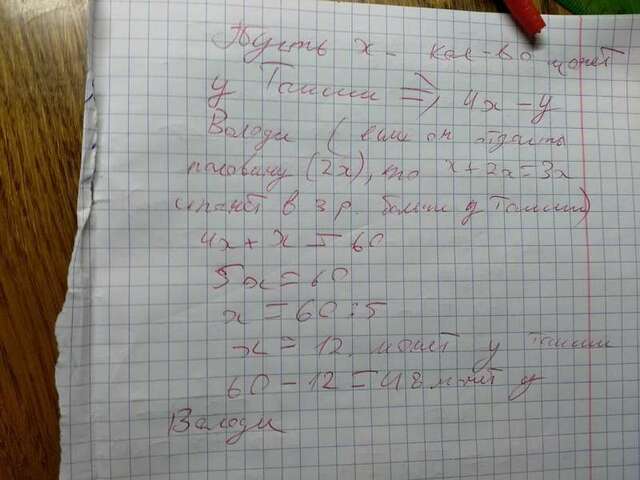 Пусть x - кол-во монет
у Таиси ⇒ 4x - у
Володи (если он отдаёт
половину (2x), то x + 2x = 3x
станет в 3 р. больше у Таиси)
4x + x = 60
5x = 60
x = 60 : 5
x = 12 монет у Таиси
60 - 12 = 48 монет у
Володи